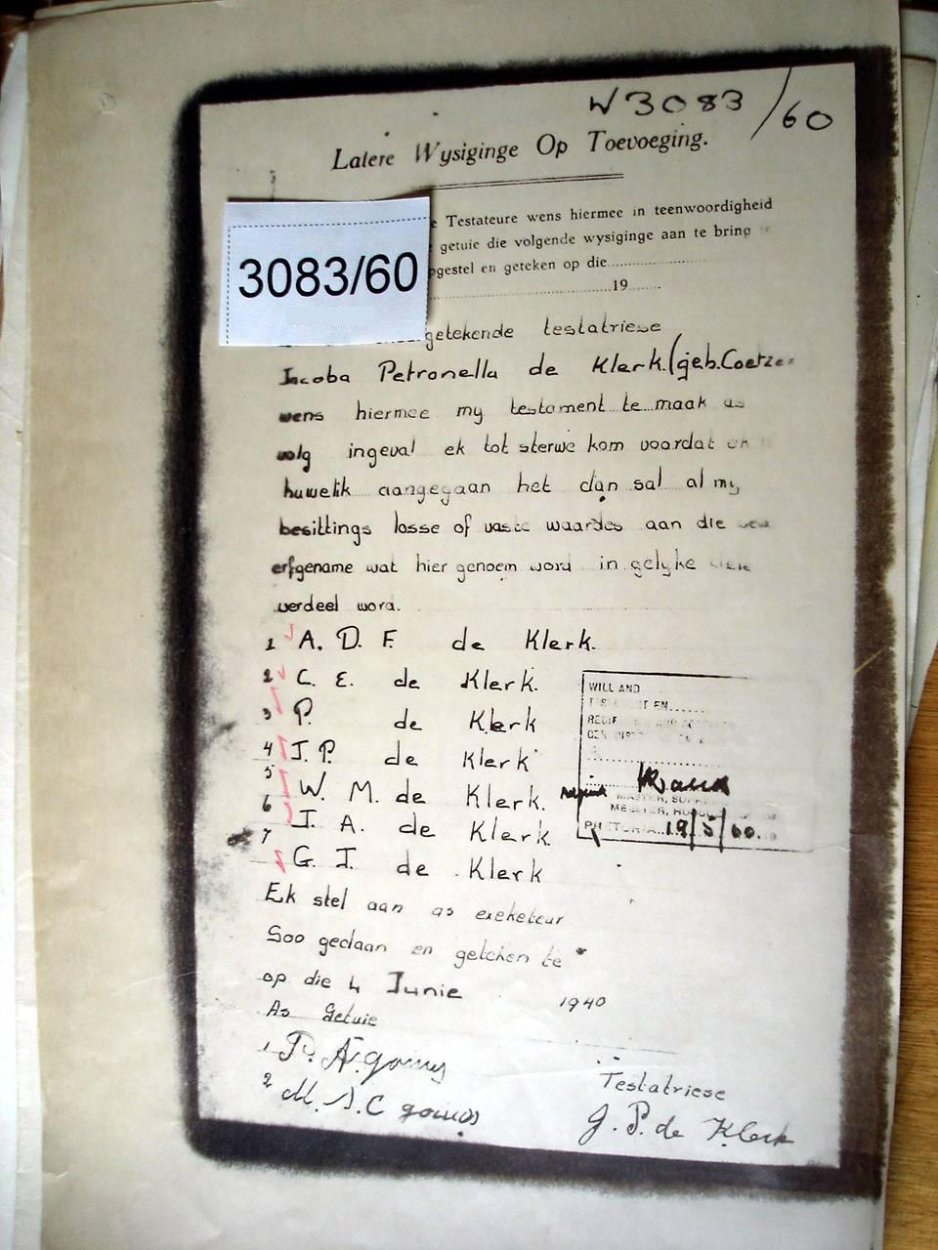 W 3083/60
Latere Wysiginge Op Toevoeging.
Testateure wens hiermee in teenwoordigheid
getuie die volgende wysiginge aan te bring
3083/60
en geteken op die
19
getekende testatriese
Jacoba Petronella de Klerk. (geb. Coetze
wens hiermee my testament te maak as
volg ingeval ek tot sterwe kom voordat ek
huwelik aangegaan het dan sal al my
besittings losse of vaste waardes aan die
erfgename wat hier genoem word in gelyke
verdeel word.
1 A. D. F. de Klerk.
2 C. E. de Klerk.
3 P. de Klerk
4 J. P. de Klerk
5 W. M. de Klerk.
6 J. A. de Klerk
7 G. J. de Klerk
WILL AND
MASTER,
PRETORIA 19/5/60.
Ek stel aan as exekuteur
Soo gedaan en geteken te
op die 4 Junie 1940
As Getuie
1 P. A. gouws
2 M. S. C gouws
Testatriese
J. P. de Klerk